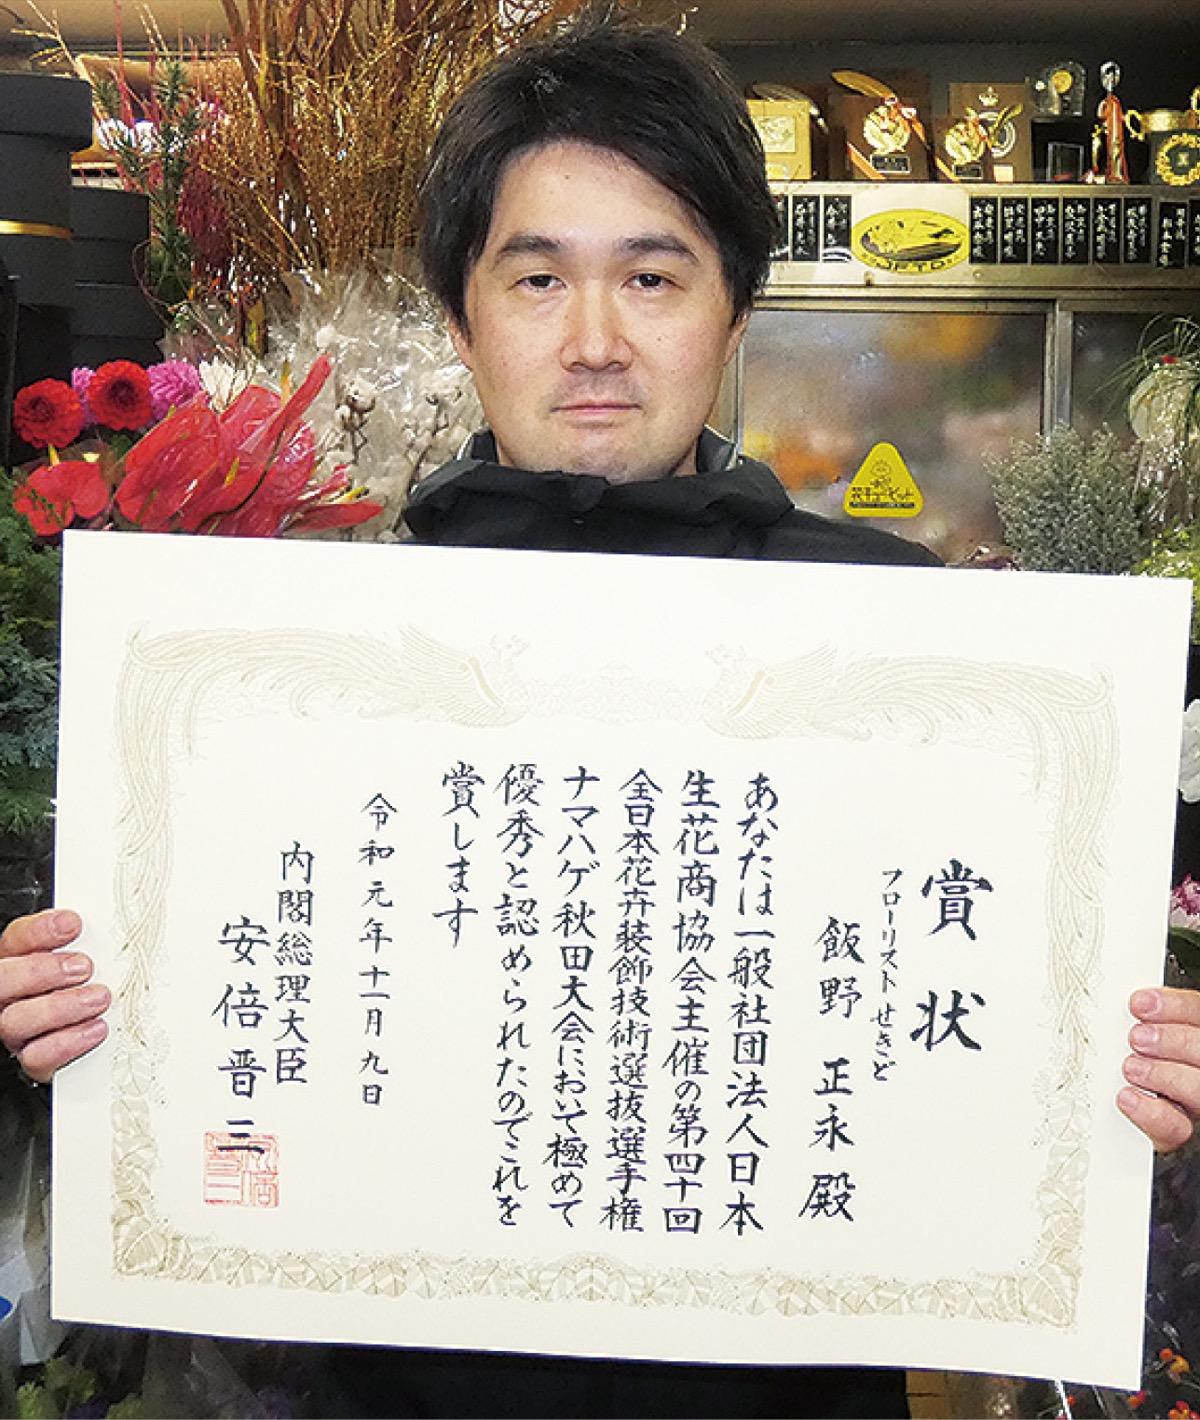 賞状
フローリスト せきど
飯野 正永 殿
あなたは一般社団法人日本
生花商協会主催の第四十回
全日本花卉装飾技術選抜選手権
ナマハゲ秋田大会において極めて
優秀と認められたのでこれを
賞します
令和元年十一月九日
内閣総理大臣
安倍晋三
JFTD
花キューピット